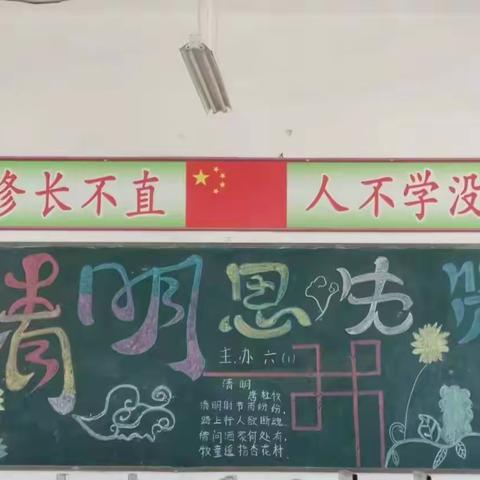 修长不直 人不学没
清明思忧
主办 六(1)
清明
唐 杜牧
清明时节雨纷纷,
路上行人欲断魂
借问酒家何处有,
牧童遥指杏花村.